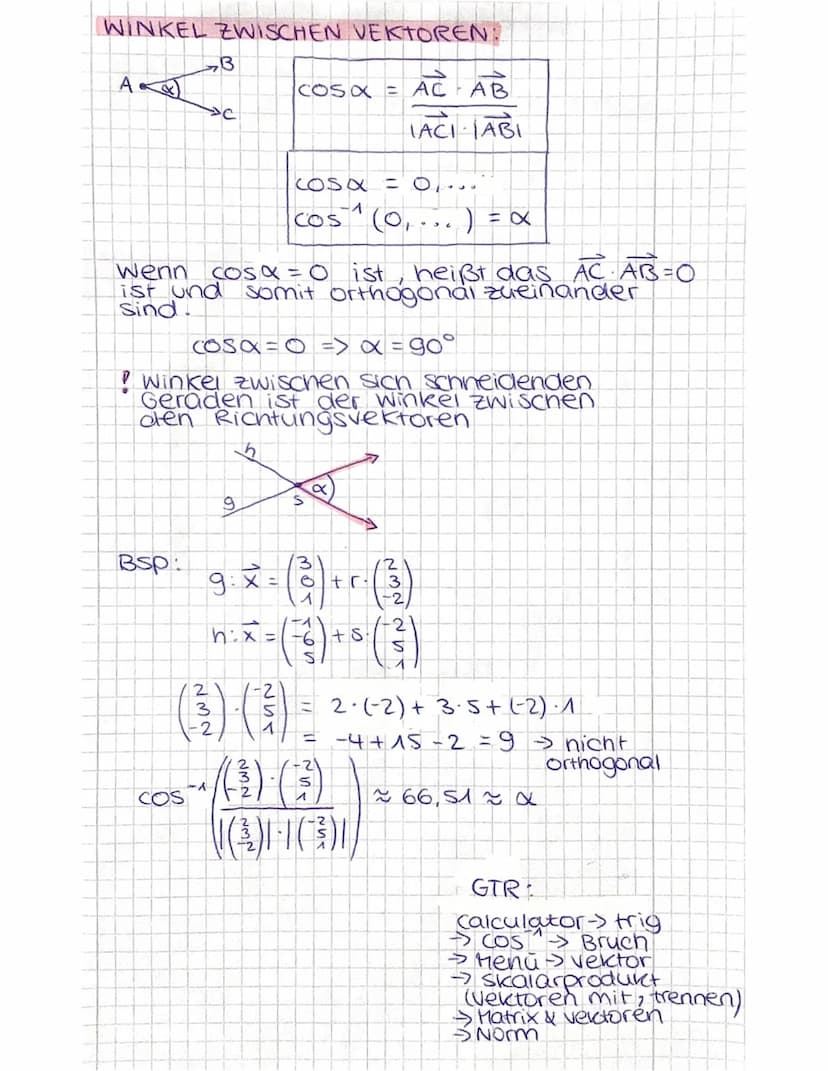 WINKEL ZWISCHEN VEKTOREN:
A α B C
cos α = (AC⃗ · AB⃗) / (|AC⃗| · |AB⃗|)
cos α = 0,...
cos⁻¹ (0,...) = α
Wenn cos α = 0 ist, heißt das AC⃗ · AB⃗ = 0
ist und somit orthogonal zueinander
sind.
cos α = 0 => α = 90°
! Winkel zwischen sich schneidenden
Geraden ist der Winkel zwischen
den Richtungsvektoren
h g S α
BSP:
g: x⃗ = (3 0 1) + r · (2 3 -2)
h: x⃗ = (-1 -6 5) + s · (-2 5 1)
(2 3 -2) · (-2 5 1) = 2·(-2) + 3·5 + (-2)·1
= -4 + 15 - 2 = 9 → nicht
orthogonal
cos⁻¹ (((2 3 -2) · (-2 5 1)) / (|(2 3 -2)| · |(-2 5 1)|)) ≈ 66,51 ≈ α
GTR:
Calculator → trig
→ cos⁻¹ → Bruch
→ Menü → Vektor
→ Skalarprodukt
(Vektoren mit , trennen)
→ Matrix & Vektoren
→ Norm